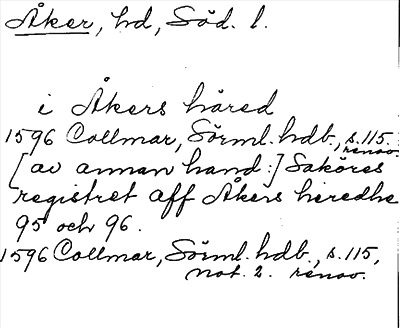 Åker, hd, Söd. l.
i Åkers häred
1596 Collmar, Sörml. hdb., s. 115.
renov.
[av annan hand:] Saköres
registret aff Åkers heredhe
95 och 96.
1596 Collmar, Sörml. hdb., s. 115,
not. 2. renov.